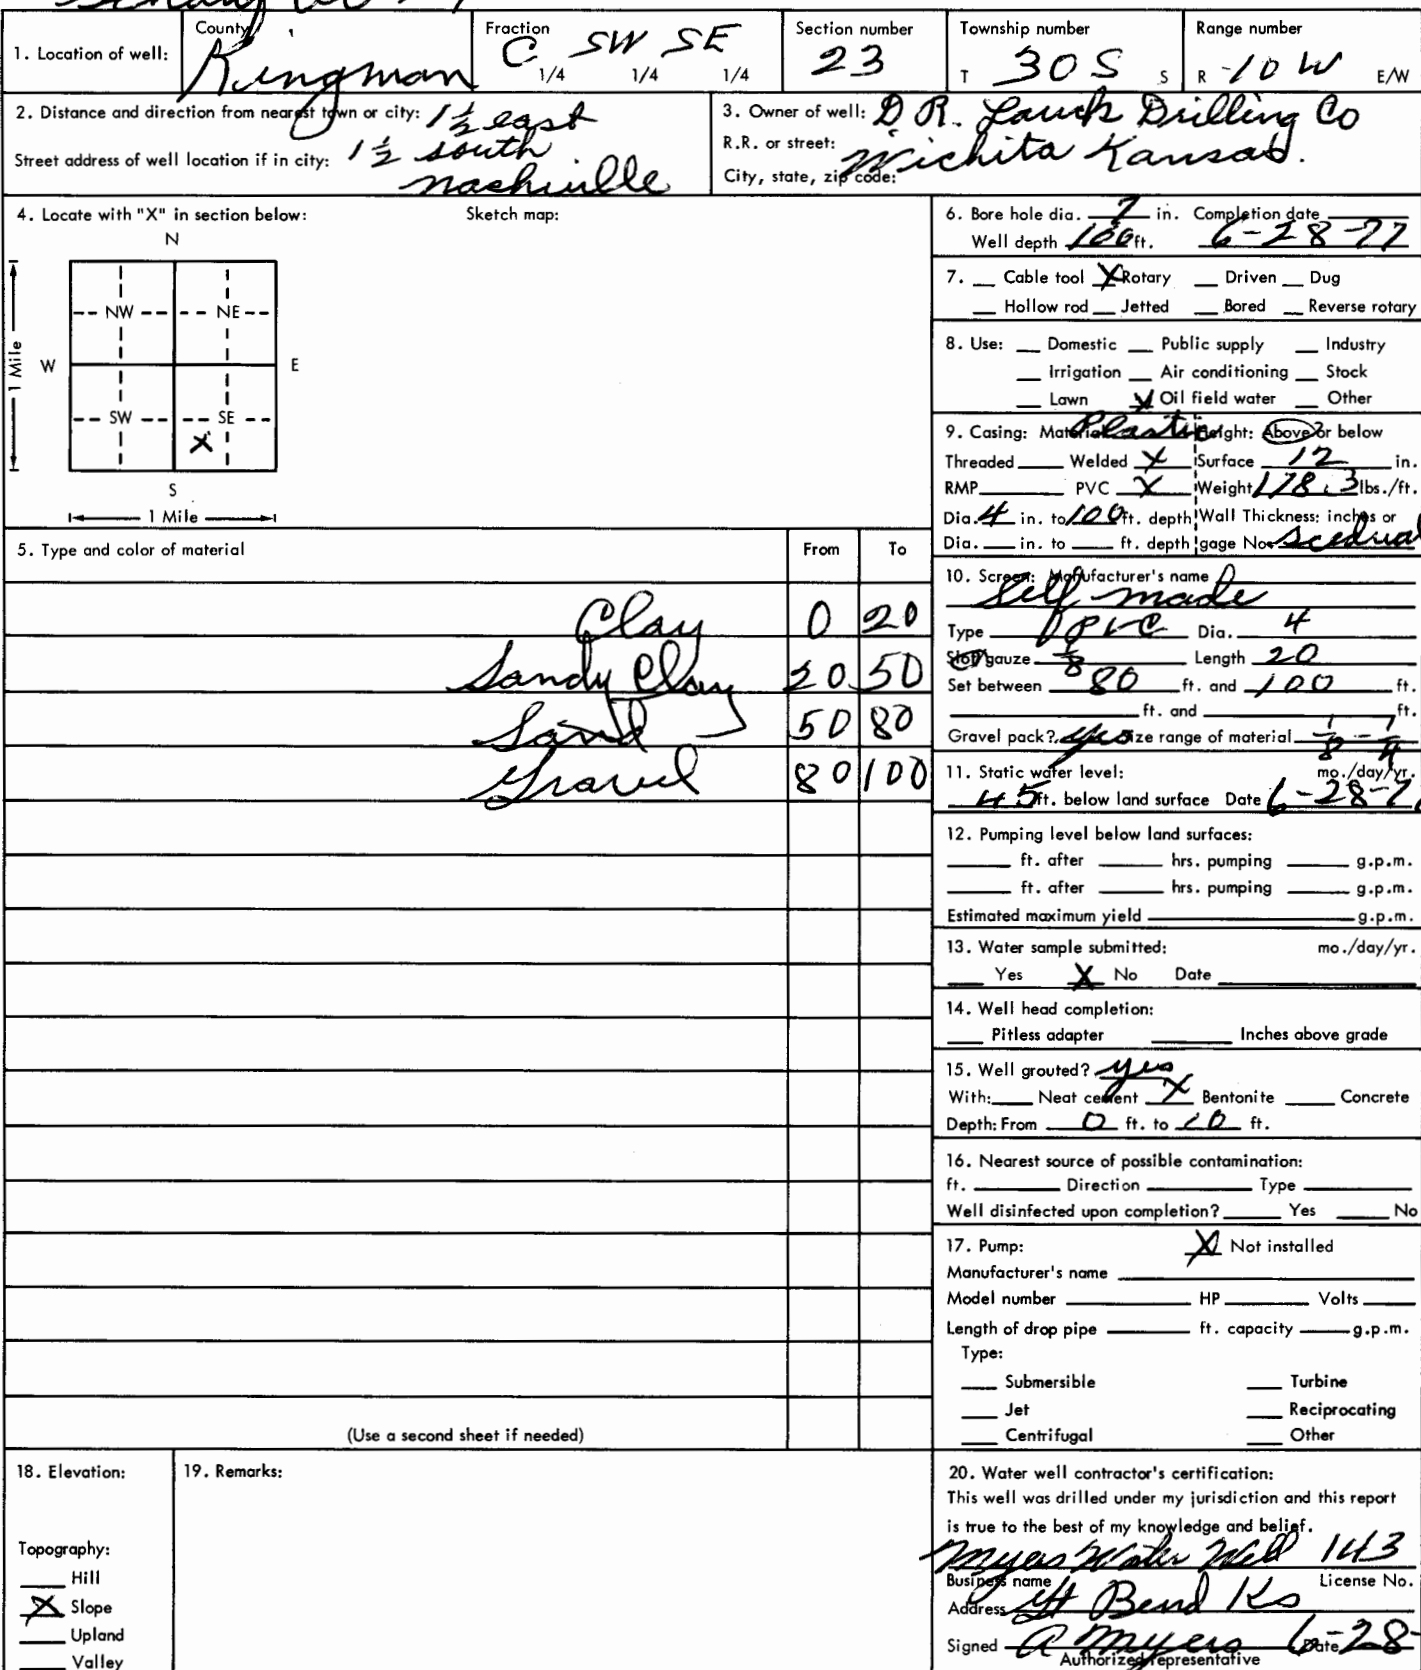 County Fraction Section number Township number Range number
1. Location of well: Kingman C 1/4 SW 1/4 SE 1/4 23 T 30S S R 10 W E/W
2. Distance and direction from nearest town or city: 1½ east
Street address of well location if in city: 1½ south
Nashville
3. Owner of well: D R. Lauck Drilling Co
R.R. or street:
City, state, zip code: Wichita Kansas.
4. Locate with "X" in section below: Sketch map:
N
NW NE
1 Mile W E
SW SE
X
S
1 Mile
5. Type and color of material From To
Clay 0 20
Sandy Clay 20 50
Sand 50 80
Gravel 80 100
(Use a second sheet if needed)
6. Bore hole dia. 7 in. Completion date
Well depth 100 ft. 6-28-77
7. __ Cable tool X Rotary __ Driven __ Dug
__ Hollow rod __ Jetted __ Bored __ Reverse rotary
8. Use: __ Domestic __ Public supply __ Industry
__ Irrigation __ Air conditioning __ Stock
__ Lawn X Oil field water __ Other
9. Casing: Material Plastic Height: Above or below
Threaded ____ Welded X Surface 12 in.
RMP ____ PVC X Weight 178.3 lbs./ft.
Dia. 4 in. to 100 ft. depth Wall Thickness: inches or
Dia. ___ in. to ___ ft. depth gage No. scedual
10. Screen: Manufacturer's name
Self made
Type PVC Dia. 4
Slot gauze 1/8 Length 20
Set between 80 ft. and 100 ft.
____ ft. and ____ ft.
Gravel pack? yes Size range of material 1/8 - 1/4
11. Static water level: mo./day/yr.
45 ft. below land surface Date 6-28-7
12. Pumping level below land surfaces:
____ ft. after ____ hrs. pumping ____ g.p.m.
____ ft. after ____ hrs. pumping ____ g.p.m.
Estimated maximum yield ____ g.p.m.
13. Water sample submitted: mo./day/yr.
__ Yes X No Date ____
14. Well head completion:
__ Pitless adapter ____ Inches above grade
15. Well grouted? yes
With: ___ Neat cement X Bentonite ___ Concrete
Depth: From 0 ft. to 10 ft.
16. Nearest source of possible contamination:
ft. ____ Direction ____ Type ____
Well disinfected upon completion? ____ Yes ____ No
17. Pump: X Not installed
Manufacturer's name ____
Model number ____ HP ____ Volts ____
Length of drop pipe ____ ft. capacity ____ g.p.m.
Type:
__ Submersible __ Turbine
__ Jet __ Reciprocating
__ Centrifugal __ Other
18. Elevation: 19. Remarks:
Topography:
__ Hill
X Slope
__ Upland
__ Valley
20. Water well contractor's certification:
This well was drilled under my jurisdiction and this report
is true to the best of my knowledge and belief.
Myers Water Well 143
Business name License No.
Address Gt Bend Ks
Signed A Myers Date 6-28-
Authorized representative